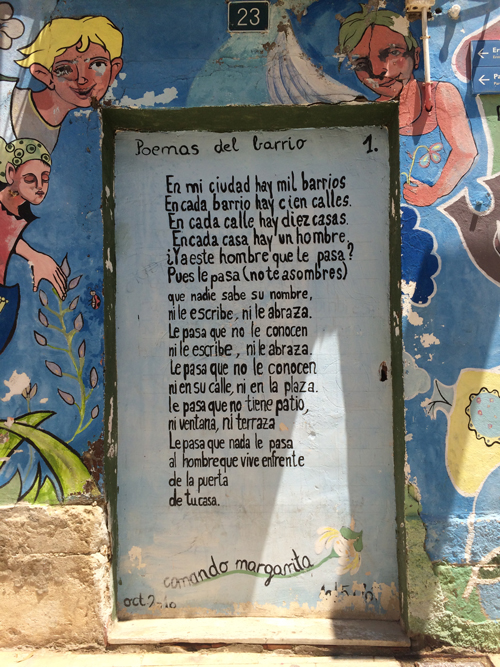 23
Poemas del barrio 1.
En mi ciudad hay mil barrios
En cada barrio hay cien calles.
En cada calle hay diez casas.
En cada casa hay un hombre.
¿Ya este hombre que le pasa?
Pues le pasa (no te asombres)
que nadie sabe su nombre,
ni le escribe, ni le abraza.
Le pasa que no le conocen
ni le escribe, ni le abraza.
Le pasa que no le conocen
ni en su calle, ni en la plaza.
le pasa que no tiene patio,
ni ventana, ni terraza
Le pasa que nada le pasa
al hombre que vive enfrente
de la puerta
de tu casa.
comando margarita